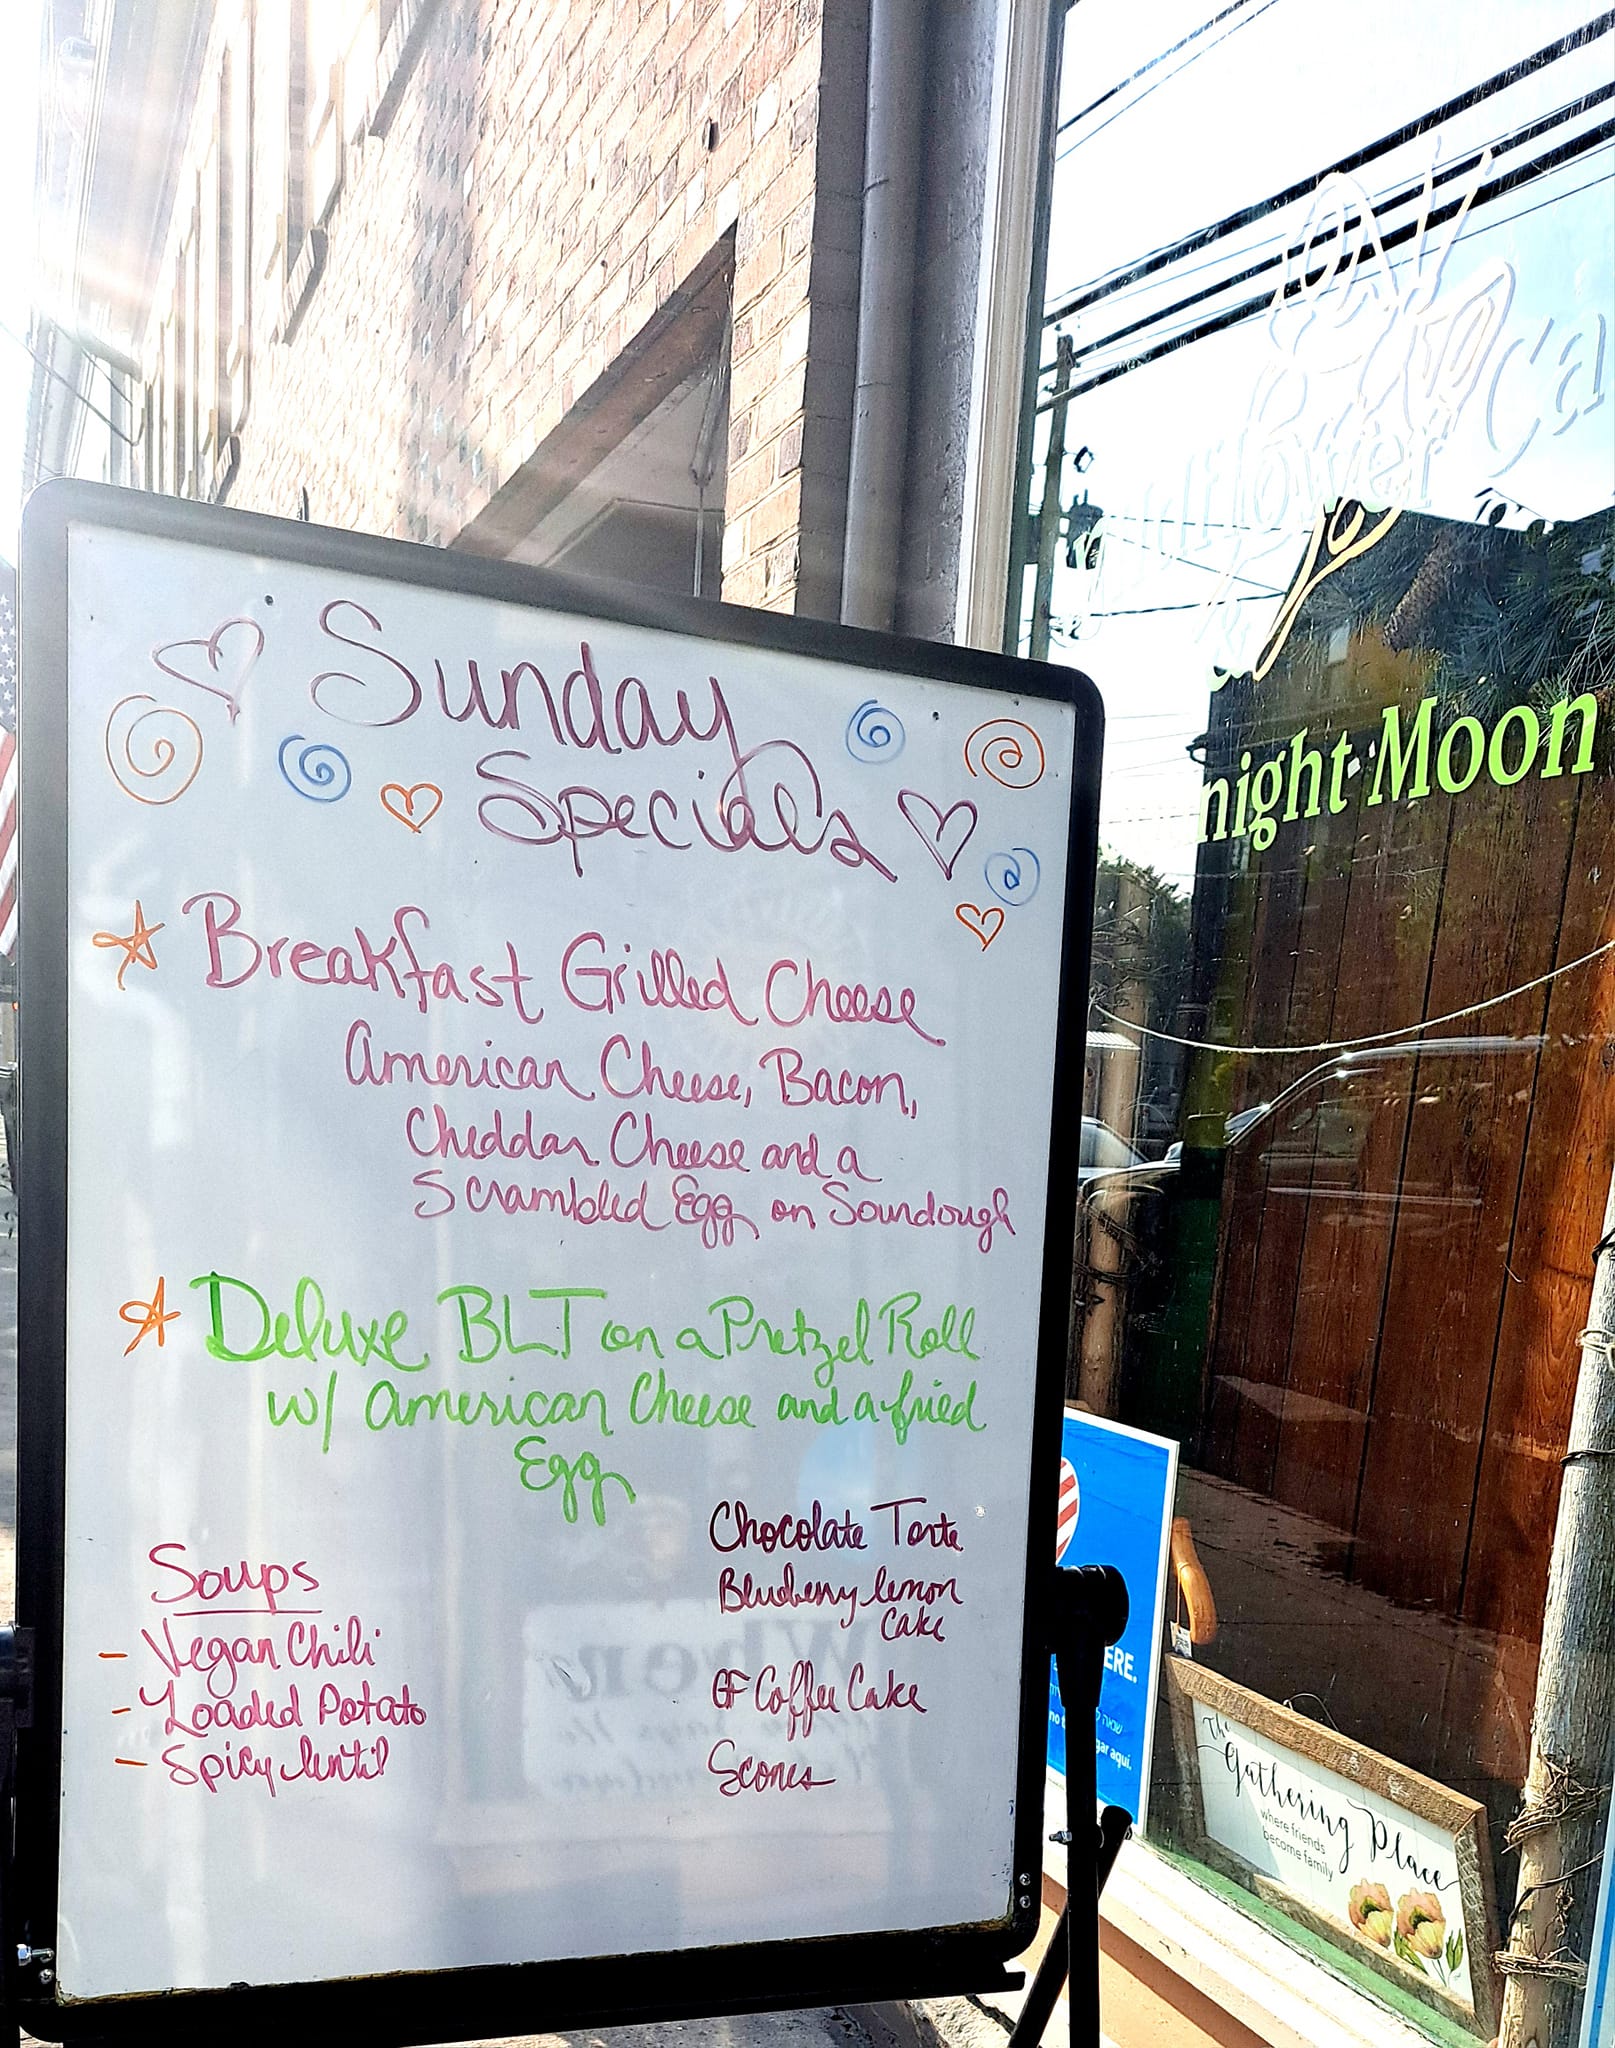 Sunday
Specials
Breakfast Grilled Cheese
American Cheese, Bacon,
Cheddar Cheese and a
Scrambled Egg on Sourdough
Deluxe BLT on a Pretzel Roll
w/ American Cheese and a fried
Egg
Soups
- Vegan Chili
- Loaded Potato
- Spicy lentil
Chocolate Torte
Blueberry lemon
Cake
GF Coffee Cake
Scones
flower Ca
night Moon
ERE.
gar aquí.
The
Gathering Place
where friends
become family